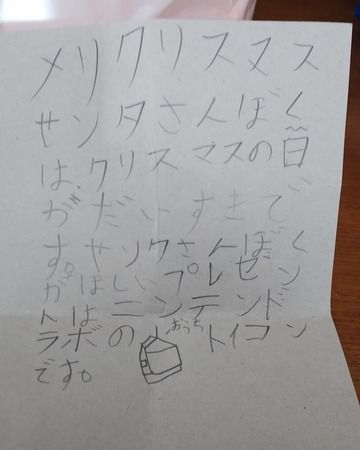 メリクリスヌス
サンタさんぼく
はクリスマスの日
がだいすきで
す。サンタさんぼく
がほしいプレゼン
トはニンテンド
ラボのおうちトイコン
です。